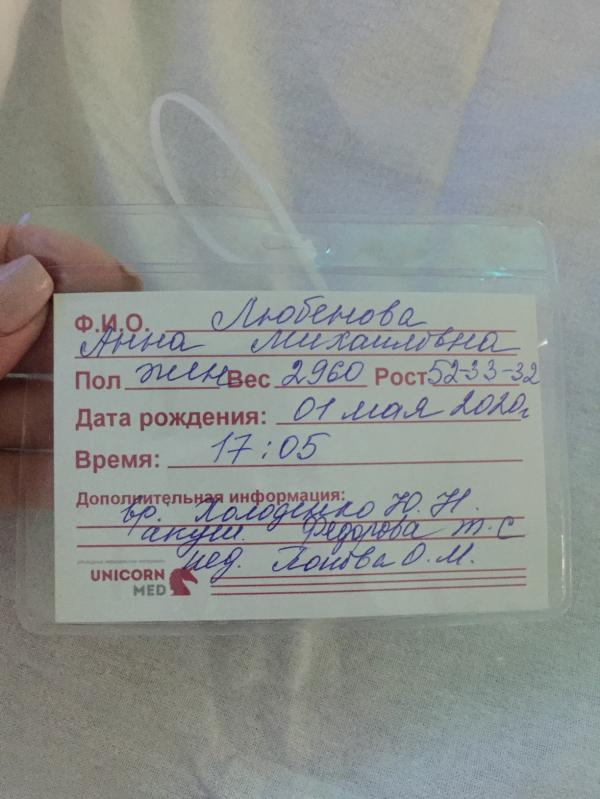 Ф.И.О. Любенова
Анна Михайловна
Пол жен Вес 2960 Рост 52-33-32
Дата рождения: 01 мая 2020г
Время: 17:05
Дополнительная информация:
вр. Холоденко Ю. Н.
акуш. Федорова Т. С
пед. Попова О. М.
UNICORN
MED